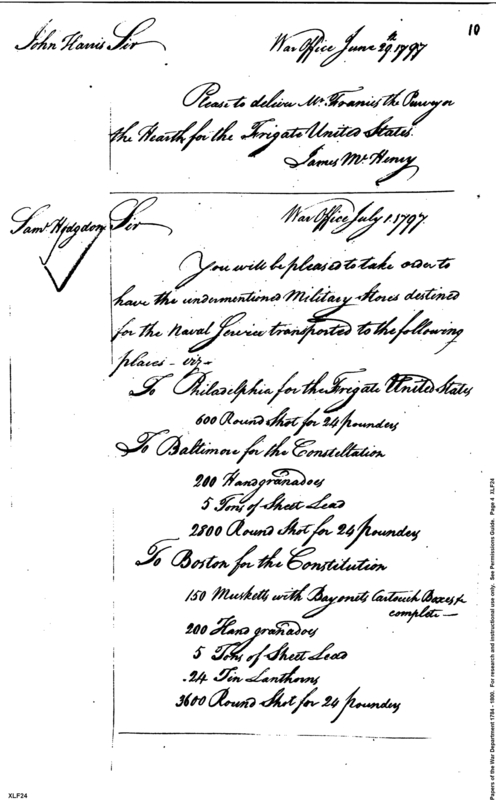 10
John Harris Sir War Office June 29th. 1797
Please to deliver Mr. Francis the Purveyor
the Hearth for the Frigate United States.
James McHenry
Saml Hodgdon Sir War Office July 1. 1797.
You will be pleased to take order to
have the undermentioned Military Stores destined
for the Naval Service transported to the following
places - viz -
To Philadelphia for the Frigate United States
600 Round Shot for 24 pounders
To Baltimore for the Constellation
200 Handgranadoes
5 Tons of Sheet Lead
2800 Round Shot for 24 pounders
To Boston for the Constitution
150 Musketts with Bayonets Cartouch Boxes &
complete -
200 Hand granadoes
5 Tons of Sheet Lead
24 Tin Lanthorns
3600 Round Shot for 24 pounders
XLF24
Papers of the War Department 1784 - 1800. For research and instructional use only. See Permissions Guide. Page 4 XLF24